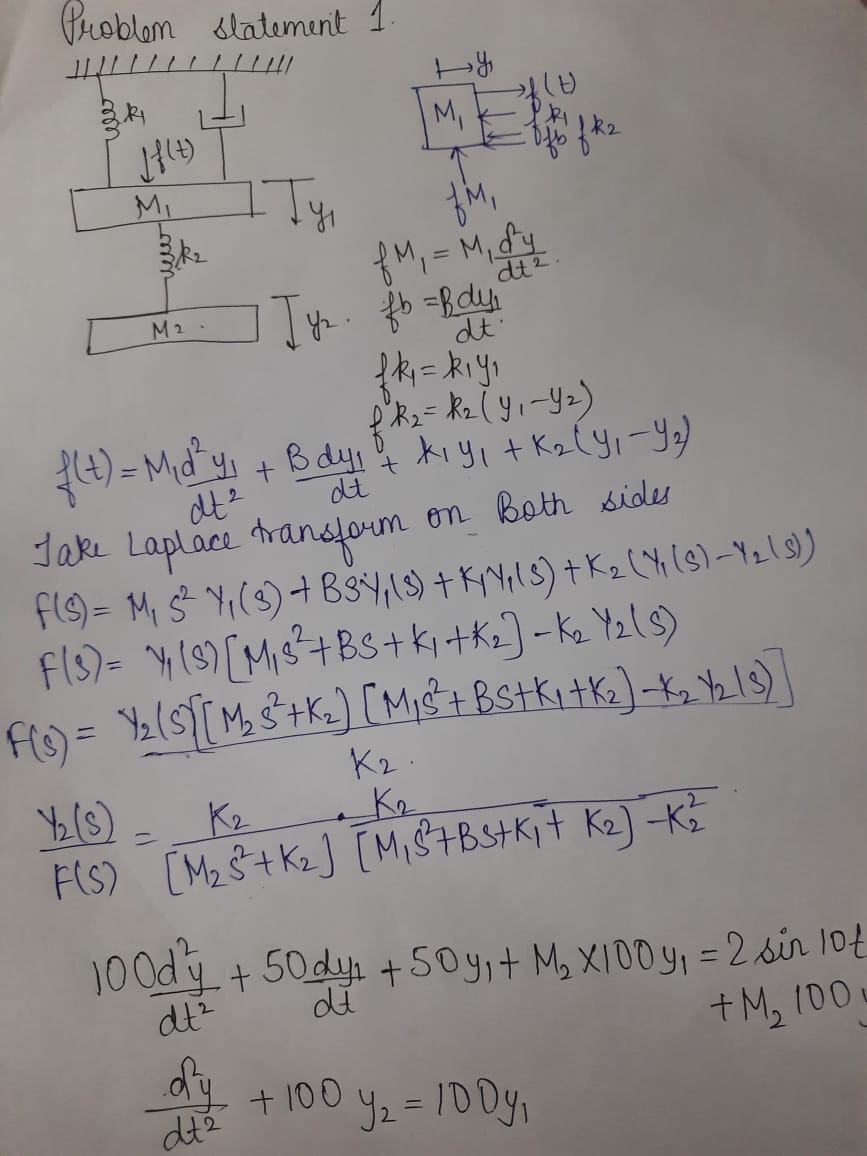 Problem statement 1.
k1
f(t)
M1
y1
k2
M2.
y2.
y1
M1
f(t)
fk1
fb fk2
fM1
fM1 = M1 d²y/dt².
fb = B dy1/dt.
fk1 = k1y1
fk2 = k2(y1-y2)
f(t) = M1d²y1/dt² + Bdy1/dt + k1y1 + K2(y1-y2)
Take Laplace transform on Both sides
F(S) = M1 S² Y1(S) + BSY1(S) + K1Y1(S) + K2(Y1(S)-Y2(S))
F(S) = Y1(S)[M1S²+BS+K1+K2]-K2 Y2(S)
F(S) = Y2(S)[[M2S²+K2][M1S²+BS+K1+K2]-K2Y2(S)]/K2.
Y2(S)/F(S) = K2 . K2/[M2S²+K2] [M1S²+BS+K1+K2]-K2²
100d²y/dt² + 50dy1/dt + 50y1 + M2 X100y1 = 2 sin 10t
+ M2 100y
d²y/dt² + 100 y2 = 100y1